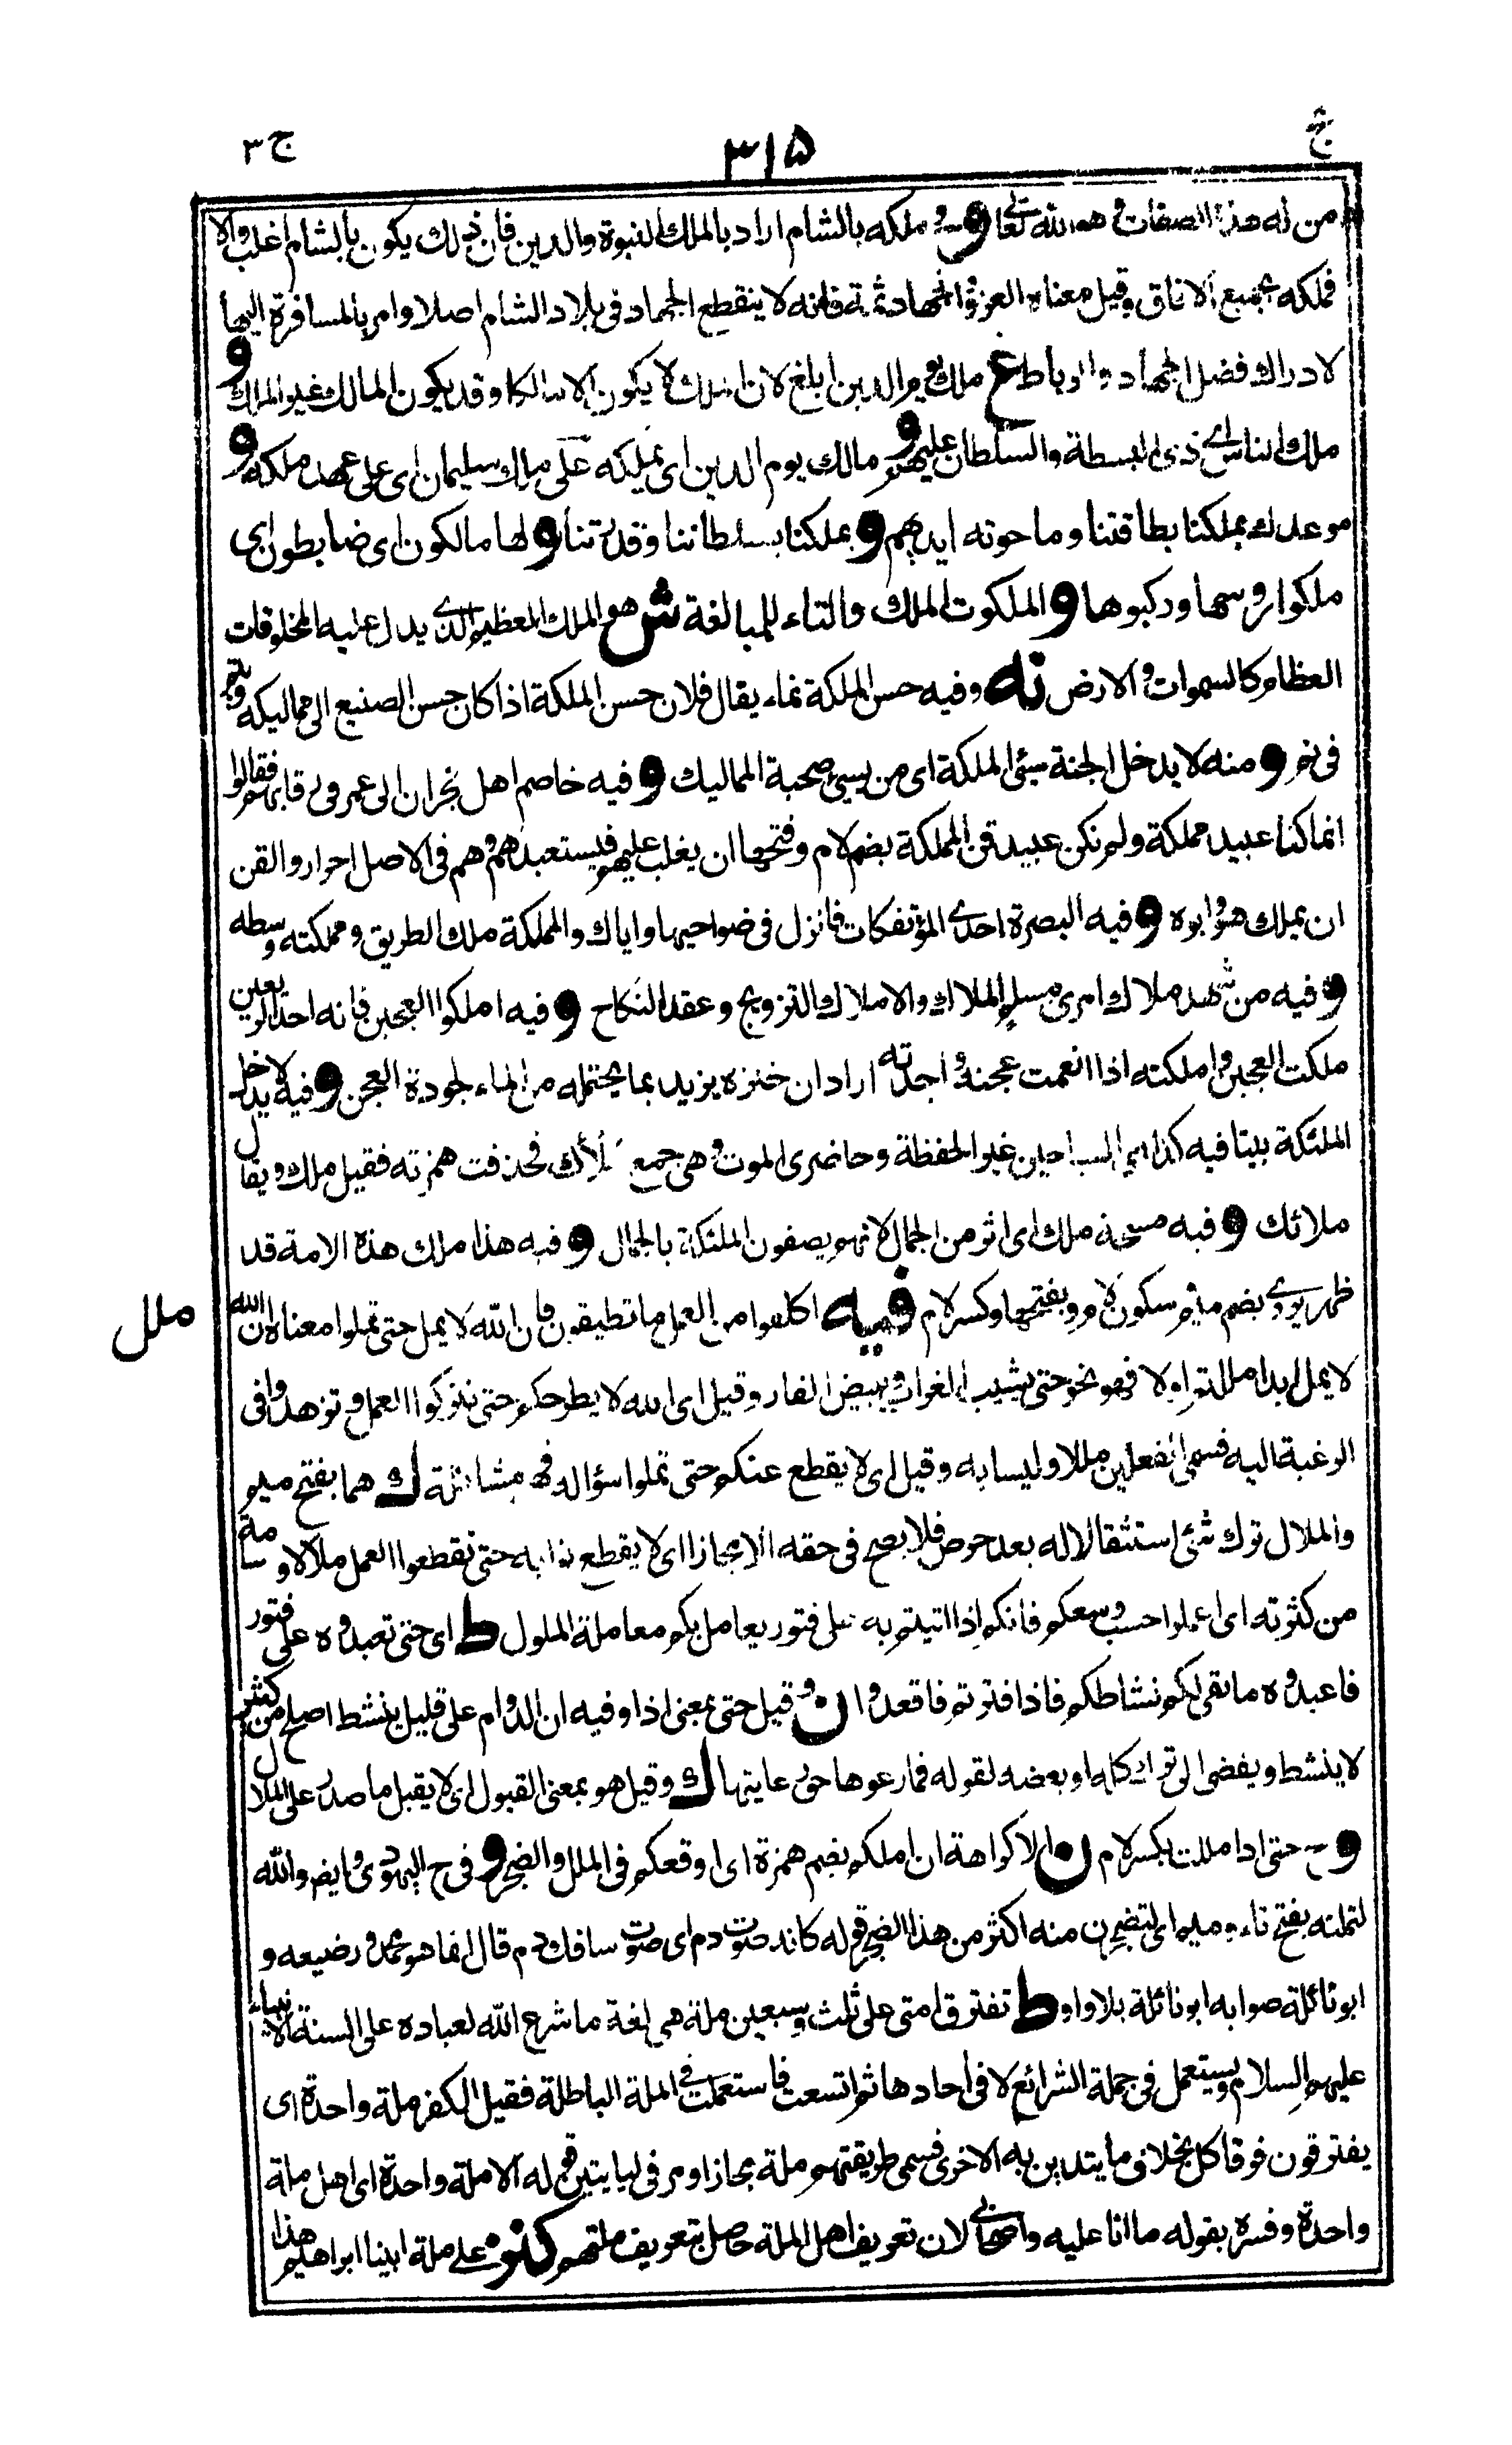 ج ٣١٥ ج٣
من له هذا الصفات و هو الله تعا و ملكه بالشام اراد بالملك النبوة والدين فان ذلك يكون بالشام اغلب والا
فملكه بجميع الافاق وقيل معناه الغزو والجهاد ثمة فانه لا ينقطع الجهاد فى بلاد الشام اصلا وامر بالمسافرة اليها
لادراك فضل الجهاد والرباط غ ملك يوم الدين ابلغ لان الملك لا يكون الا مالكا وقد يكون المالك غير الملك و
ملك الناس اى ذى البسطة والسلطان عليهم و مالك يوم الدين اى يملكه على ملك سليمان اى على عهد ملكه و
موعدك بملكنا بطاقتنا وما حوته ايديهم و بملكنا بسلطاننا وقدرتنا و لها مالكون اى ضابطون اى
ملكوا رؤسها وركبوها و الملكوت الملك والتاء للمبالغة ش هو الملك العظيم الذى يدل عليه المخلوقات
العظام كالسموات والارض نه وفيه حسن الملكة نماء يقال فلان حسن الملكة اذا كان حسن الصنيع الى مماليكه ويتم
فى نم و منه لا يدخل الجنة سيئ الملكة اى من يسئ صحبة المماليك و فيه خاصم اهل نجران الى عمر فى رقابهم فقالوا
انما كنا عبيد مملكة ولم نكن عبيد قن المملكة بضم لام وفتحها ان يغلب عليهم فيستعبدهم وهم فى الاصل احرار والقن
ان يملك هو وابوه و فيه البصرة احدى المؤتفكات فانزل فى ضواحيها واياك والمملكة ملك الطريق ومملكته وسطه
و فيه من شهد ملاك امرئ مسلم الملاك والاملاك التزويج وعقد النكاح و فيه املكوا العجين فانه احد الريعين
ملكت العجين واملكته اذا انعمت عجنه واجدته اراد ان خبزه يزيد بما يحتمله من الماء لجودة العجن و فيه لا يدخل
الملئكة بيتا فيه كذا اى السياحين غير الحفظة وحاضرى الموت وهى جمع ملأك فحذفت همزته فقيل ملك ويقال
ملائك و فيه مسحة ملك اى اثر من الجمال لانهم يصفون الملئكة بالجمال و فيه هذا ملك هذه الامة قد
ظهر يروى بضم ميم وسكون لام وبفتحها وكسر لام فيه اكلفوا من العمل ما تطيقون فان الله لا يمل حتى تملوا معناه ان الله
ملل
لا يمل ابدا مللتم اولا فهو نحو حتى يشيب الغراب ويبيض الفار وقيل اى الله لا يطرحكم حتى تتركوا العمل وتزهدوا فى
الرغبة اليه فسمى الفعلين مللا وليسا به وقيل اى لا يقطع عنكم حتى تملوا سؤاله فهو مشاكلة ك هما بفتح ميم
والملال ترك شئ استثقالا له بعد حرص فلا يصح فى حقه الا مجازا اى لا يقطع ثوابه حتى تقطعوا العمل ملالا وسامة
من كثرته اى اعملوا حسب وسعكم فانكم اذا اتيتم به على فتور يعامل بكم معاملة الملول ط اى حتى تعبدوه على فتور
فاعبدوه ما بقى لكم نشاطكم فاذا فترتم فاقعدوا ن و قيل حتى بمعنى اذا وفيه ان الدوام على قليل ينشط اصلح من كثير
لا ينشط ويفضى الى ترك كله او بعضه لقوله فما رعوها حق رعايتها ك وقيل هو بمعنى القبول اى لا يقبل ما صدر على الملال
و ح حتى اذا مللت بكسر لام ن الا كراهة ان املكم بضم همزة اى اوقعكم فى الملل والضجر و فى ح اليهودى وايضر والله
لتملنه بفتح تاء وميم اى لتضجرن منه اكثر من هذا الضجر قوله كانه صوت دم اى صوت سافك دم قال انما هو محمد ورضيعه و
ابو نائلة صوابه ابو نائلة بلا واو ط تفترق امتى على ثلث وسبعين ملة هى لغة ما شرع الله لعباده على السنة الانبياء
عليهم السلام ويستعمل فى جملة الشرائع لا فى احادها ثم اتسعت فاستعملت فى الملة الباطلة فقيل الكفر ملة واحدة اى
يفترقون فرقا كل بخلاف ما يتدين به الاخرى فسمى طريقتهم ملة مجازا ومر فى لياتين قوله الا ملة واحدة اى اهل ملة
واحدة وفسره بقوله ما انا عليه واصحابى لان تعريف اهل الملة حاصل بتعريف ملتهم كنز على ملة ابينا ابراهيم هذا